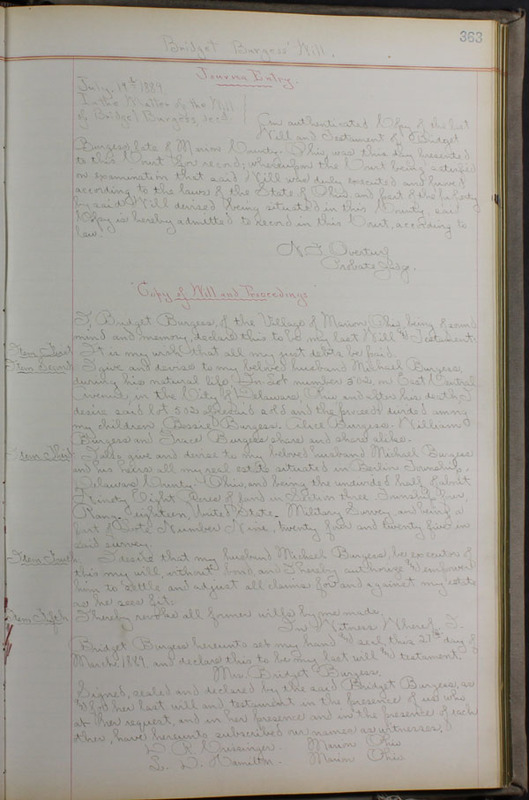 363
Bridget Burgess' Will.
Journal Entry.
July 19th 1889
In the Matter of the Will
of Bridget Burgess, decd
An authenticated Copy of the last
Will and Testament of Bridget
Burgess late of Marion County, Ohio, was this day presented
to this Court for record; whereupon the Court being satisfied
on examination that said Will was duly executed and proved
according to the laws of the State of Ohio, and part of the property
by said Will devised being situated in this County, said
Copy is hereby admitted to record in this Court, according to
law.
N. F. Overturf
Probate Judge.
"Copy of Will and Proceedings"
I, Bridget Burgess, of the Village of Marion, Ohio, being of sound
mind and memory, declare this to be my last Will & Testament:
Item First It is my wish that all my just debts be paid.
Item Second I give and devise to my beloved husband Michael Burgess,
during his natural life, In Lot number 502, on East Central
Avenue, in the City of Delaware, Ohio, and after his death, I
desire said lot 502 aforesaid sold and the proceeds divided among
my children, Bessie Burgess, Alice Burgess, William
Burgess and Grace Burgess share and share alike.
Item Third I also give and devise to my beloved husband Michael Burgess
and his heirs all my real estate situated in Berlin Township,
Delaware County Ohio, and being the undivided half of about
Ninety Eight Acres of land in Section three, Township four,
Range Eighteen, United States Military Survey, and being a
part of Lots Number Nine, twenty four and twenty five in
said survey.
Item Fourth I desire that my husband, Michael Burgess, be executor of
this my will, without bond, and I hereby authorize & empower
him to settle and adjust all claims for and against my estate
as he sees fit.
Item Fifth I hereby revoke all former wills by me made;
In Witness Whereof, I,
Bridget Burgess hereunto set my hand & seal, this 27th day of
March 1889 and declare this to be my last will & testament.
Mrs. Bridget Burgess.
Signed, sealed and declared by the said Bridget Burgess, as
& for her last will and testament in the presence of us who
at her request, and in her presence and in the presence of each
other, have hereunto subscribed our names as witnesses,
D. R. Crissinger. Marion Ohio
L. D. Hamilton. Marion Ohio